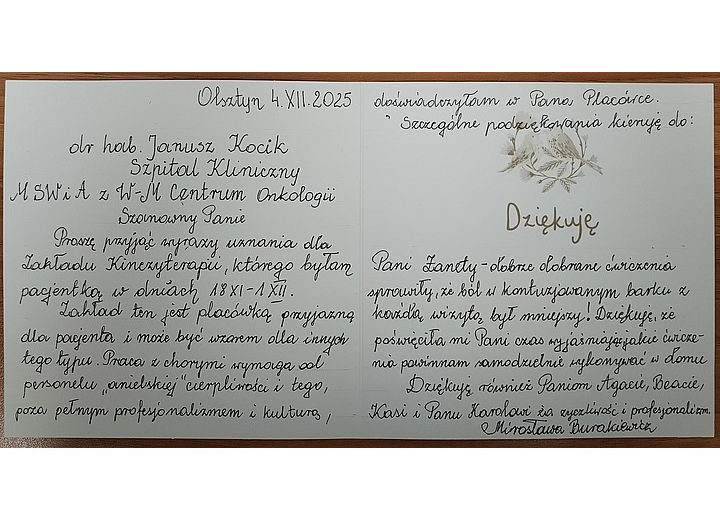 Olsztyn 4.XII.2025
dr hab. Janusz Kocik
Szpital Kliniczny
MSWiA z W-M Centrum Onkologii
Szanowny Panie
Proszę przyjąć wyrazy uznania dla
Zakładu Kinezyterapii, którego byłam
pacjentką w dniach 18 XI-1 XII.
Zakład ten jest placówką przyjazną
dla pacjenta i może być wzorem dla innych
tego typu. Praca z chorymi wymaga od
personelu "anielskiej" cierpliwości i tego,
poza pełnym profesjonalizmem i kulturą,
doświadczyłam w Pana Placówce.
Szczególne podziękowania kieruję do:
Dziękuję
Pani Żanety - dobrze dobrane ćwiczenia
sprawiły, że ból w kontuzjowanym barku z
każdą wizytą był mniejszy! Dziękuję, że
poświęciła mi Pani czas wyjaśniając jakie ćwicze-
nia powinnam samodzielnie wykonywać w domu
Dziękuję również Paniom Agacie, Beacie,
Kasi i Panu Karolowi za życzliwość i profesjonalizm.
Mirosława Burakiewicz